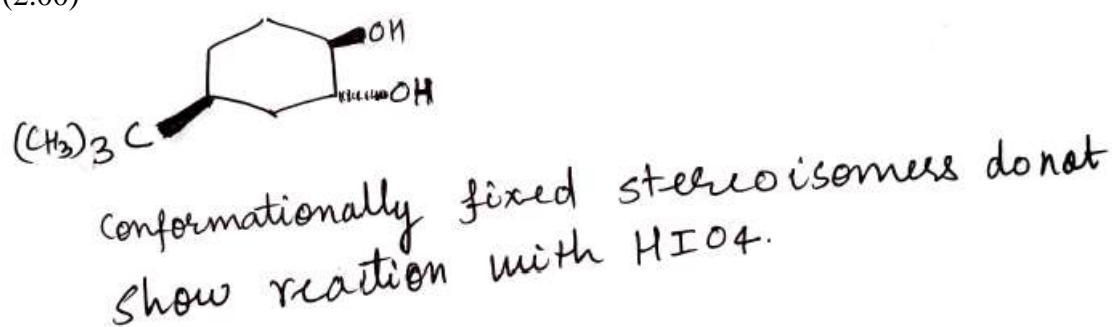 (2.00)
OH
OH
(CH3)3 C
conformationally fixed stereoisomers do not
show reaction with HIO4.